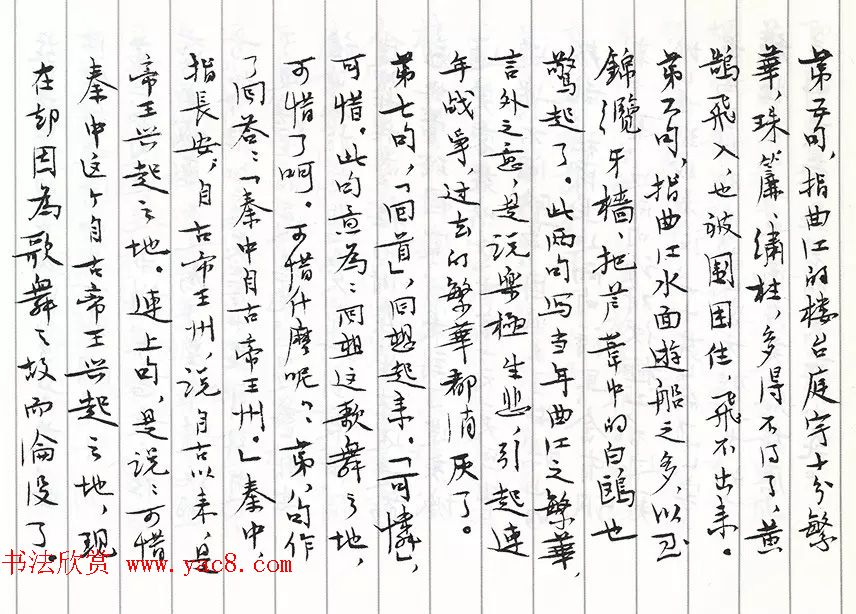 第五句，指曲江的楼台庭宇十分繁
華，珠簾、繡柱，多得不得了，黄
鹄飛入，也被圍困住，飛不出来。
第六句，指曲江水面遊船之多，以至
錦纜牙檣，把芦葦中的白鷗也
驚起了。此两句写当年曲江之繁華，
言外之意，是说樂極生悲，引起連
年战爭，过去的繁華都消灰了。
第七句，「回首」，回想起来。「可憐」，
可惜。此句意為：回想这歌舞之地，
可惜了啊。可惜什麼呢？：第八句作
了回答：「秦中自古帝王州。」秦中，
指長安，自古帝王州，说自古以来，是
帝王兴起之地。連上句，是说：可惜
秦中这个自古帝王兴起之地，现
在却因為歌舞之故而淪没了。
书法欣赏 www.yac8.com